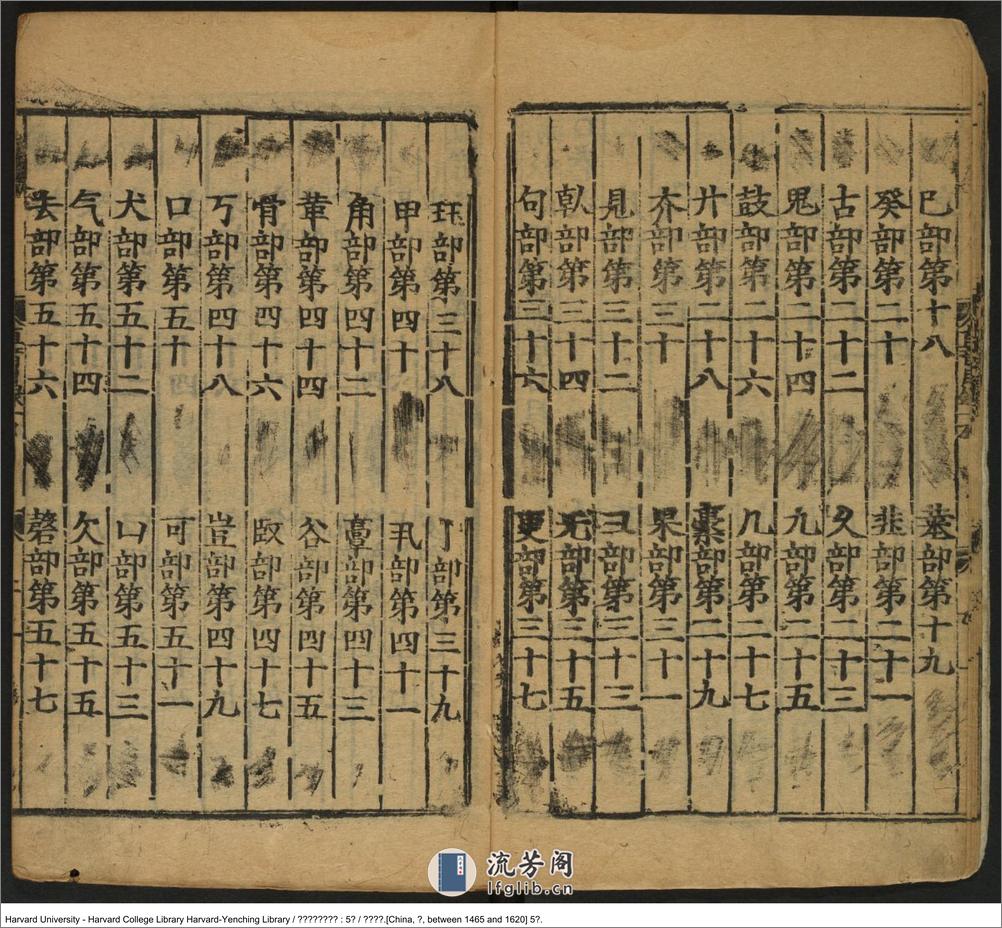 巳部第十八
癸部第二十 韭部第二十一
古部第二十二 久部第二十三
鬼部第二十四 九部第二十五
鼓部第二十六 几部第二十七
廾部第二十八 橐部第二十九
夰部第三十 果部第三十一
見部第三十二 丑部第三十三
倝部第三十四 旡部第三十五
句部第三十六 更部第三十七
玨部第三十八 部第三十九
甲部第四十 丮部第四十一
角部第四十二 部第四十三
革部第四十四 谷部第四十五
骨部第四十六 部第四十七
丂部第四十八 豈部第四十九
口部第五十 可部第五十一
犬部第五十二 凵部第五十三
气部第五十四 欠部第五十五
去部第五十六 磬部第五十七
流芳阁
lfglib.cn
Harvard University - Harvard College Library Harvard-Yenching Library / ???????? : 5? / ????.[China, ?, between 1465 and 1620] 5?.